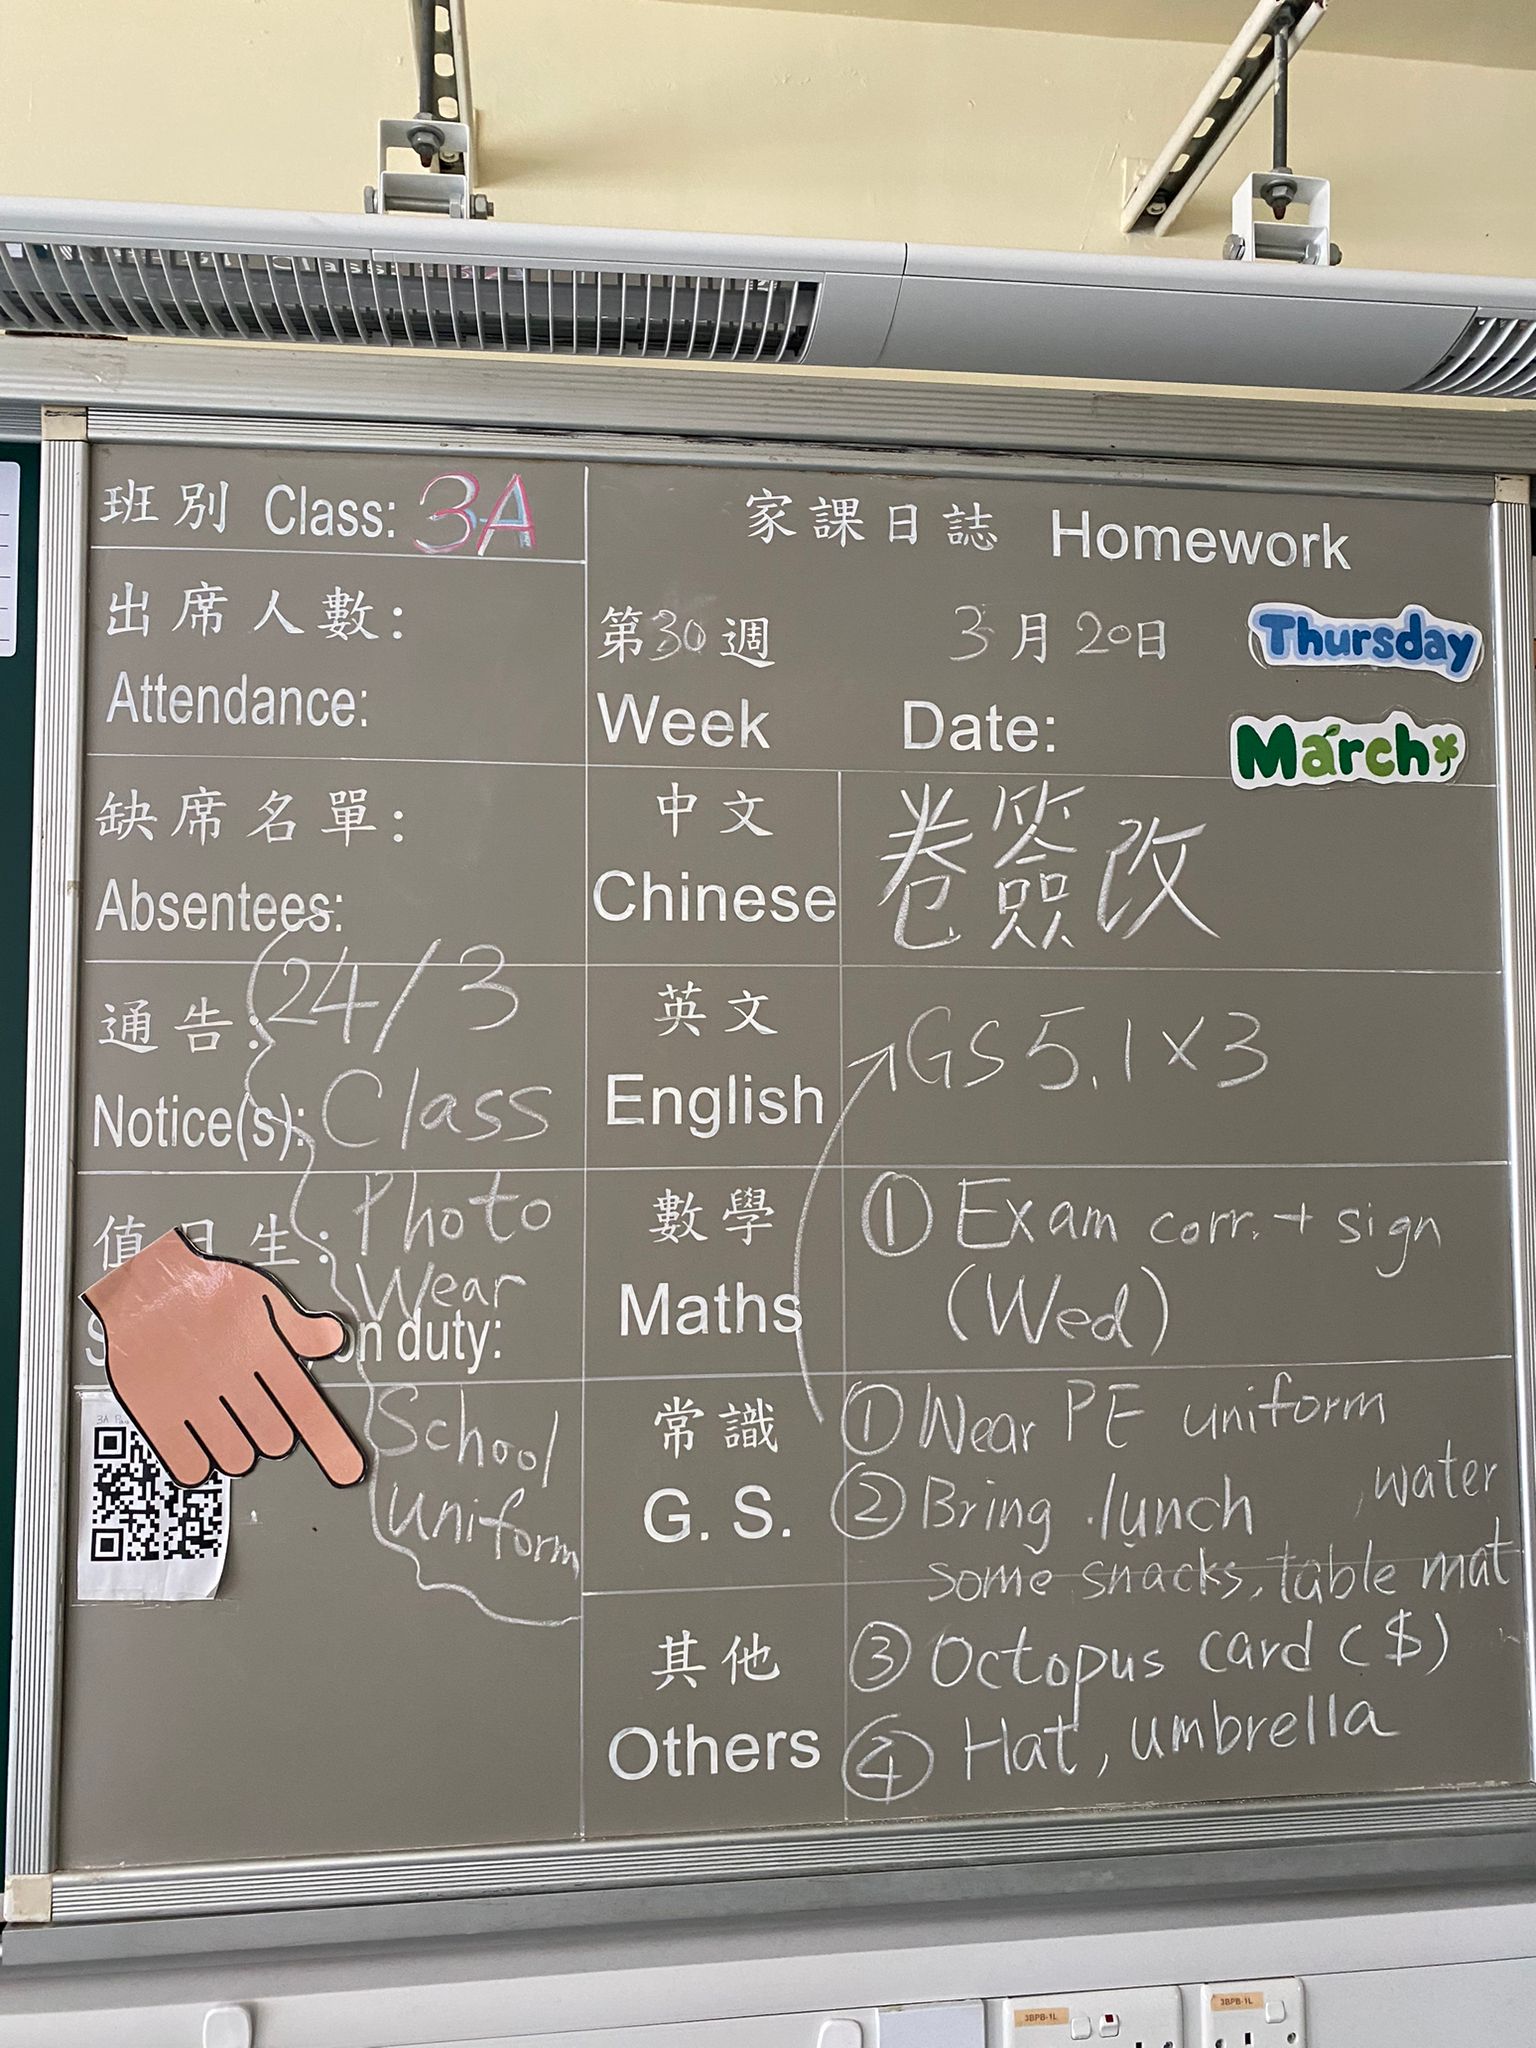 班別 Class: 3A
出席人數:
Attendance:
缺席名單:
Absentees:
通告:
Notice(s):
24/3
Class
Photo
Wear
School
uniform
值日生:
on duty:
3A
家課日誌 Homework
第30週 3月20日 Thursday
Week Date: March
中文
Chinese
卷簽改
英文
English
GS 5.1 x 3
數學
Maths
① Exam corr. + sign
(Wed)
常識
G. S.
① Wear PE uniform
② Bring lunch, water
some snacks, table mat
其他
Others
③ Octopus card ($)
④ Hat, umbrella
3BPB-1L
3BPB-1L